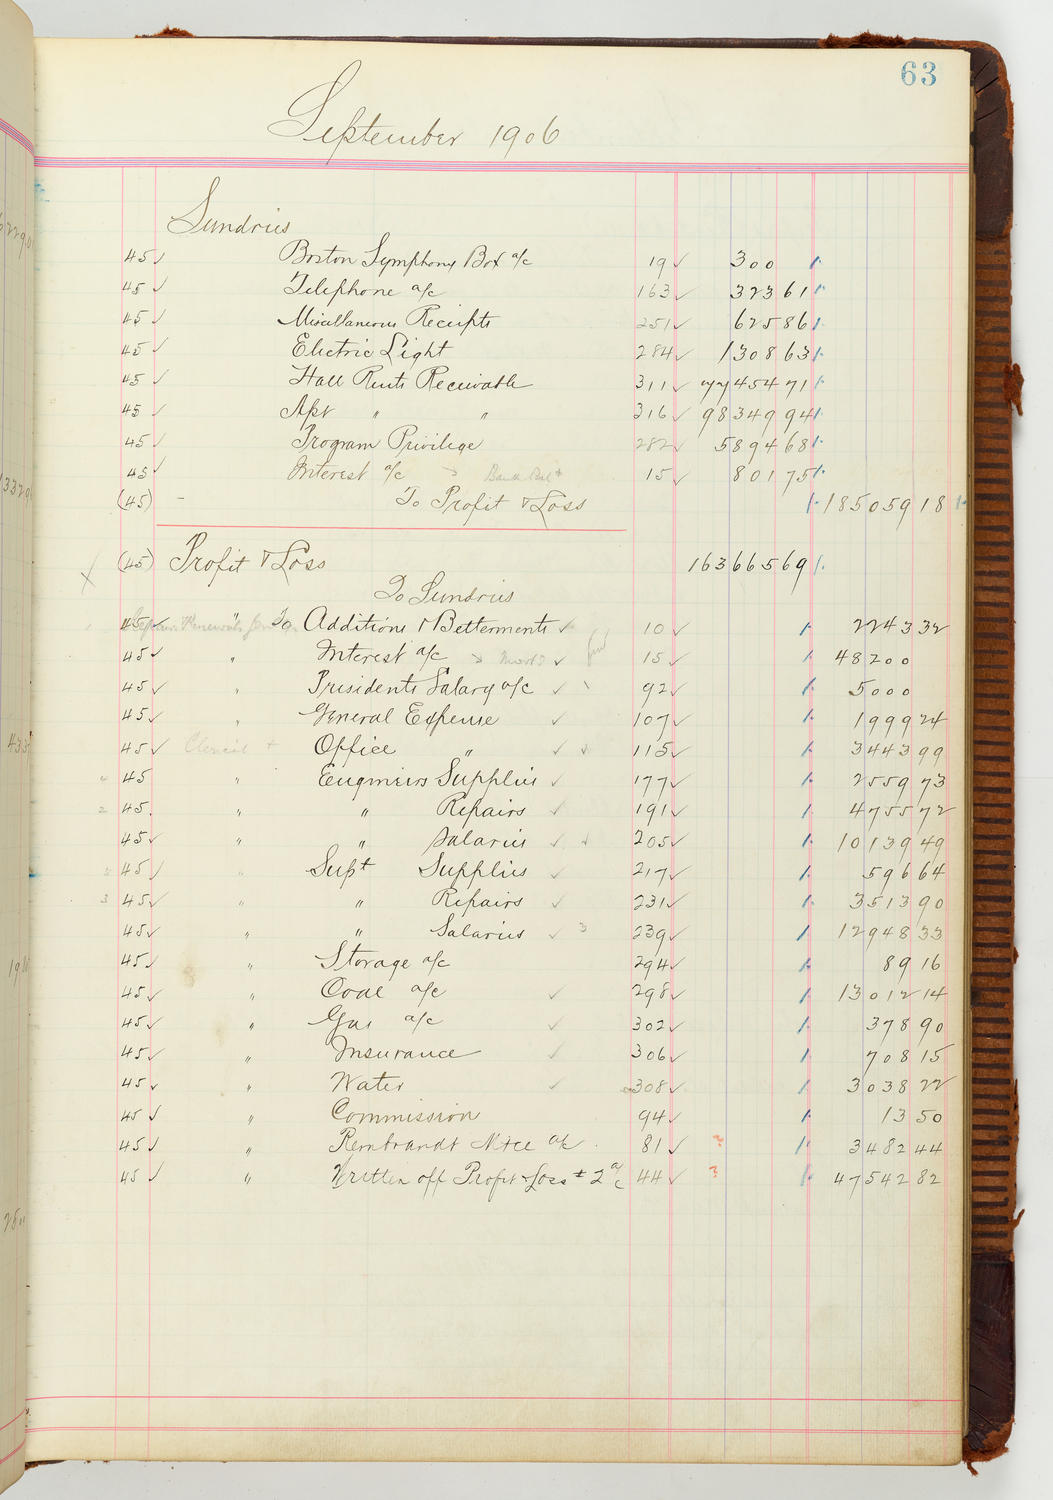 63
September 1906
Sundries
45 ✓ Boston Symphony Box a/c 19 ✓ 300
45 ✓ Telephone a/c 163 ✓ 323 61
45 ✓ Miscellaneous Receipts 251 ✓ 625 86
45 ✓ Electric Light 284 ✓ 1308 63
45 ✓ Hall Rents Receivable 311 ✓ 77454 71
45 ✓ Apt " " 316 ✓ 98349 94
45 ✓ Program Privilege 282 ✓ 5894 68
45 ✓ Interest a/c 15 ✓ 801 75
(45) - To Profit & Loss 185059 18
(45) Profit & Loss 163665 69
To Sundries
45 ✓ " To Additions & Betterments ✓ 10 ✓ 2243 32
45 ✓ " Interest a/c ✓ 15 ✓ 48200
45 ✓ " Presidents Salary a/c ✓ 92 ✓ 5000
45 ✓ " General Expense ✓ 107 ✓ 1999 24
45 ✓ Clerical + Office " ✓ 115 ✓ 3443 99
45 " Engineers Supplies ✓ 177 ✓ 2559 73
2 45 " " Repairs ✓ 191 ✓ 4755 72
45 ✓ " " Salaries ✓ 205 ✓ 10139 49
45 ✓ " Supt Supplies ✓ 217 ✓ 596 64
3 45 ✓ " " Repairs ✓ 231 ✓ 3513 90
45 ✓ " " Salaries ✓ 3 239 ✓ 12948 33
45 ✓ " Storage a/c 294 ✓ 89 16
45 ✓ " Coal a/c ✓ 298 ✓ 13012 14
45 ✓ " Gas a/c ✓ 302 ✓ 378 90
45 ✓ " Insurance ✓ 306 ✓ 708 15
45 ✓ " Water ✓ 308 ✓ 3038 22
45 ✓ " Commission 94 ✓ 13 50
45 ✓ " Rembrandt Mtce a/c 81 ✓ ? 3482 44
45 ✓ " Written off Profit & Loss # 2 a/c 44 ✓ ? 47542 82